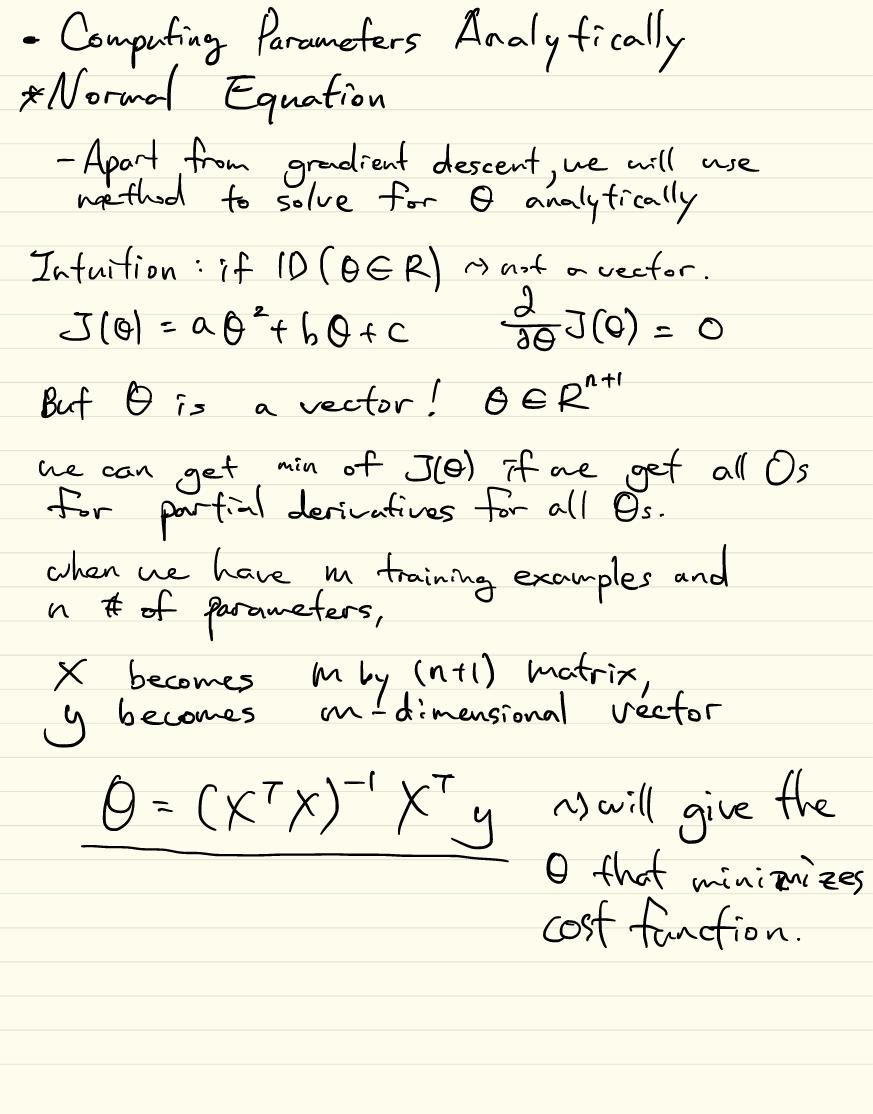 • Computing Parameters Analytically
*Normal Equation
- Apart from gradient descent, we will use
method to solve for θ analytically
Intuition : if 1D (θ ∈ R) ⇝ not a vector.
J(θ) = aθ² + bθ + c    ∂/∂θ J(θ) = 0
But θ is a vector! θ ∈ Rⁿ⁺¹
we can get min of J(θ) if we get all 0s
for partial derivatives for all θs.
when we have m training examples and
n # of parameters,
X becomes m by (n+1) matrix,
y becomes m-dimensional vector
θ = (XᵀX)⁻¹ Xᵀy ⇝ will give the
θ that minimizes
cost function.